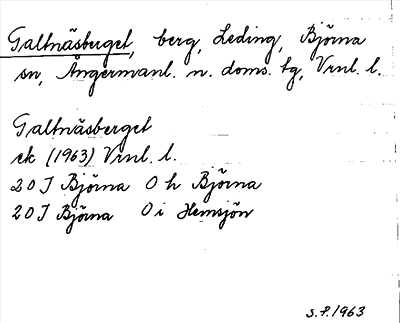 Galtnäsberget, berg, Leding, Björna
sn, Ångermanl. n. doms. tg, Vrnl. l.
Galtnäsberget
ek (1963) Vrnl. l.
20 J Björna 0 h Björna
20 J Björna 0 i Hemsjön
s. f. 1963